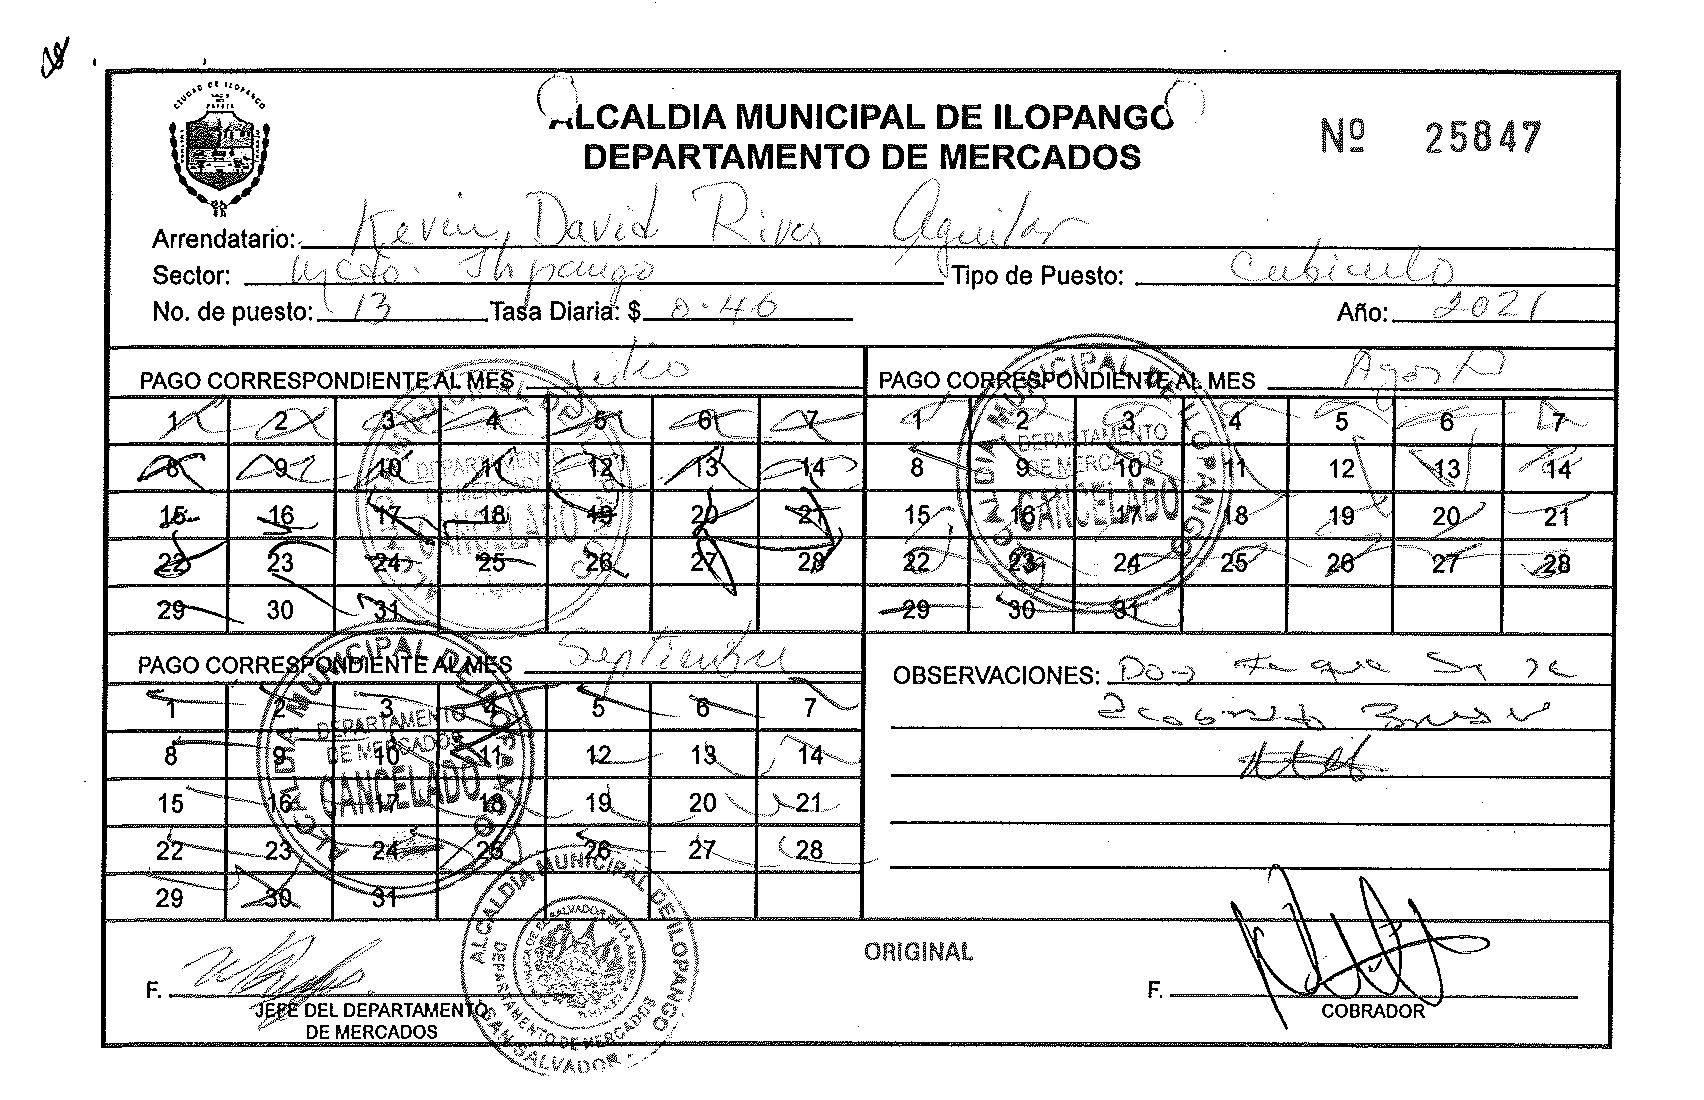 CIUDAD DE ILOPANGO
ALCALDIA MUNICIPAL DE ILOPANGO
DEPARTAMENTO DE MERCADOS
Nº 25847
Arrendatario: Kevin, David Rivas Aguilar
Sector: Mcdo. Ilopango Tipo de Puesto: Cubiculo
No. de puesto: 13 Tasa Diaria: $ 0.46 Año: 2021
PAGO CORRESPONDIENTE AL MES Julio
1 2 3 4 5 6 7
8 9 10 11 12 13 14
15 16 17 18 19 20 21
22 23 24 25 26 27 28
29 30 31
ALCALDIA MUNICIPAL DE ILOPANGO
DEPARTAMENTO
DE MERCADOS
CANCELADO
PAGO CORRESPONDIENTE AL MES Agosto
1 2 3 4 5 6 7
8 9 10 11 12 13 14
15 16 17 18 19 20 21
22 23 24 25 26 27 28
29 30 31
ALCALDIA MUNICIPAL DE ILOPANGO
DEPARTAMENTO
DE MERCADOS
CANCELADO
PAGO CORRESPONDIENTE AL MES Septiembre
1 2 3 4 5 6 7
8 9 10 11 12 13 14
15 16 17 18 19 20 21
22 23 24 25 26 27 28
29 30 31
ALCALDIA MUNICIPAL DE ILOPANGO
DEPARTAMENTO
DE MERCADOS
CANCELADO
OBSERVACIONES:
F.
JEFE DEL DEPARTAMENTO
DE MERCADOS
ALCALDIA MUNICIPAL DE ILOPANGO
DEPARTAMENTO DE MERCADOS
SAN SALVADOR
ORIGINAL
F.
COBRADOR